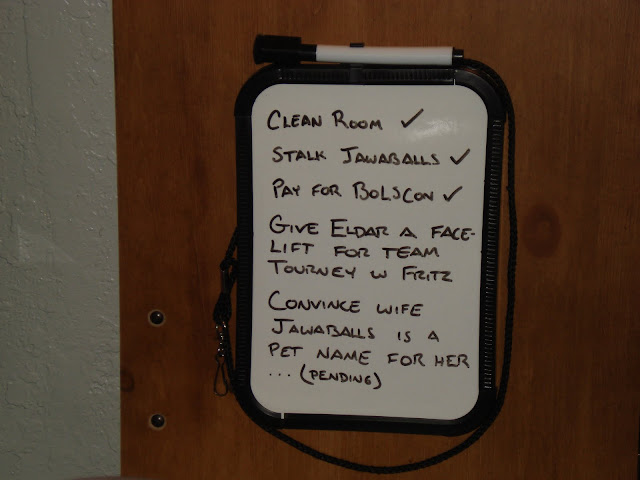 CLEAN ROOM ✓
STALK JAWABALLS ✓
PAY FOR BOLSCON ✓
GIVE ELDAR A FACE-
LIFT FOR TEAM
TOURNEY W FRITZ
CONVINCE WIFE
JAWABALLS IS A
PET NAME FOR HER
... (PENDING)